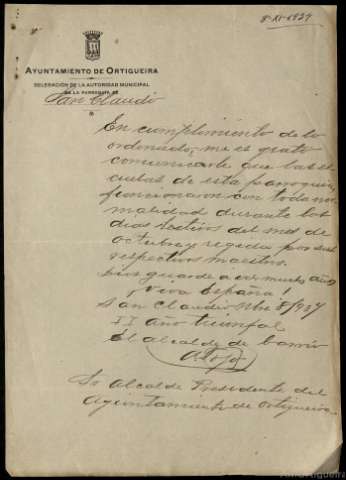 8-XI-1937
AYUNTAMIENTO DE ORTIGUEIRA
DELEGACIÓN DE LA AUTORIDAD MUNICIPAL
EN LA PARROQUIA DE
San Claudio
En cumplimiento de lo
ordenado, me es grato
comunicarle que las es
cuelas de esta parroquia,
funcionaron con toda nor
malidad durante los
dias lectivos del mes de
octubre y regida por sus
respectivos maestros.
Dios guarde a V. muchos años
Viva España!
San Claudio Nbre 8/937
II Año triunfal
El alcalde de barrio
Sr Alcalde Presidente del
Ayuntamiento de Ortigueira